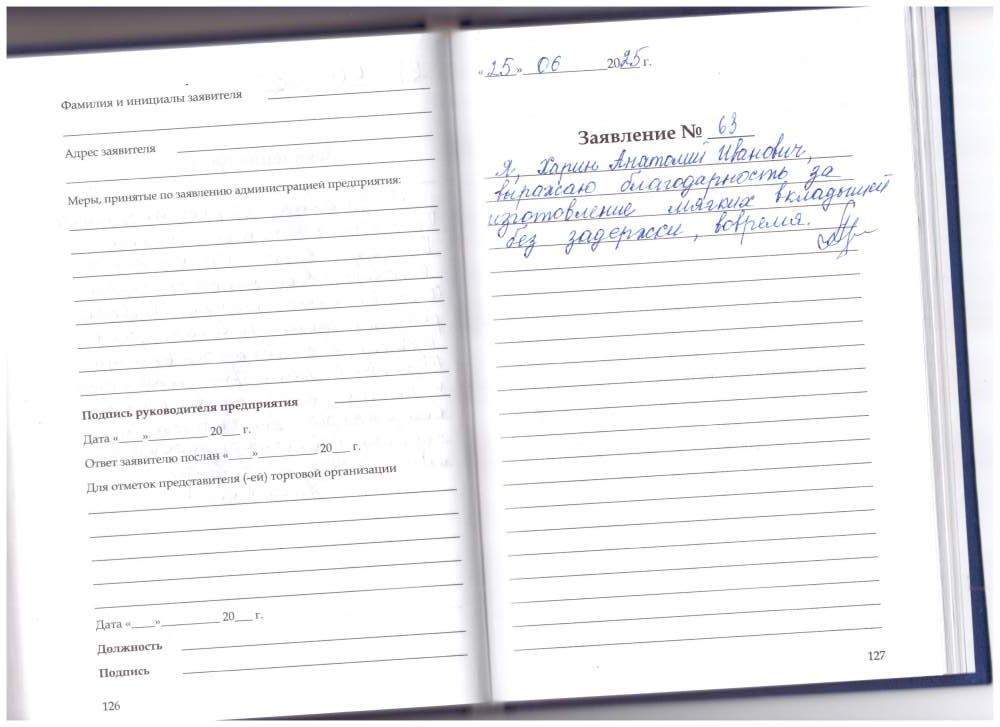 Фамилия и инициалы заявителя
Адрес заявителя
Меры, принятые по заявлению администрацией предприятия:
Подпись руководителя предприятия
Дата «____»__________ 20___ г.
Ответ заявителю послан «____»__________ 20___ г.
Для отметок представителя (-ей) торговой организации
Дата «____»__________ 20___ г.
Должность
Подпись
126
«25» 06 2025 г.
Заявление № 63
Я, Харин Анатолий Иванович,
выражаю благодарность за
изготовление мягких вкладышей
без задержки, вовремя.
127